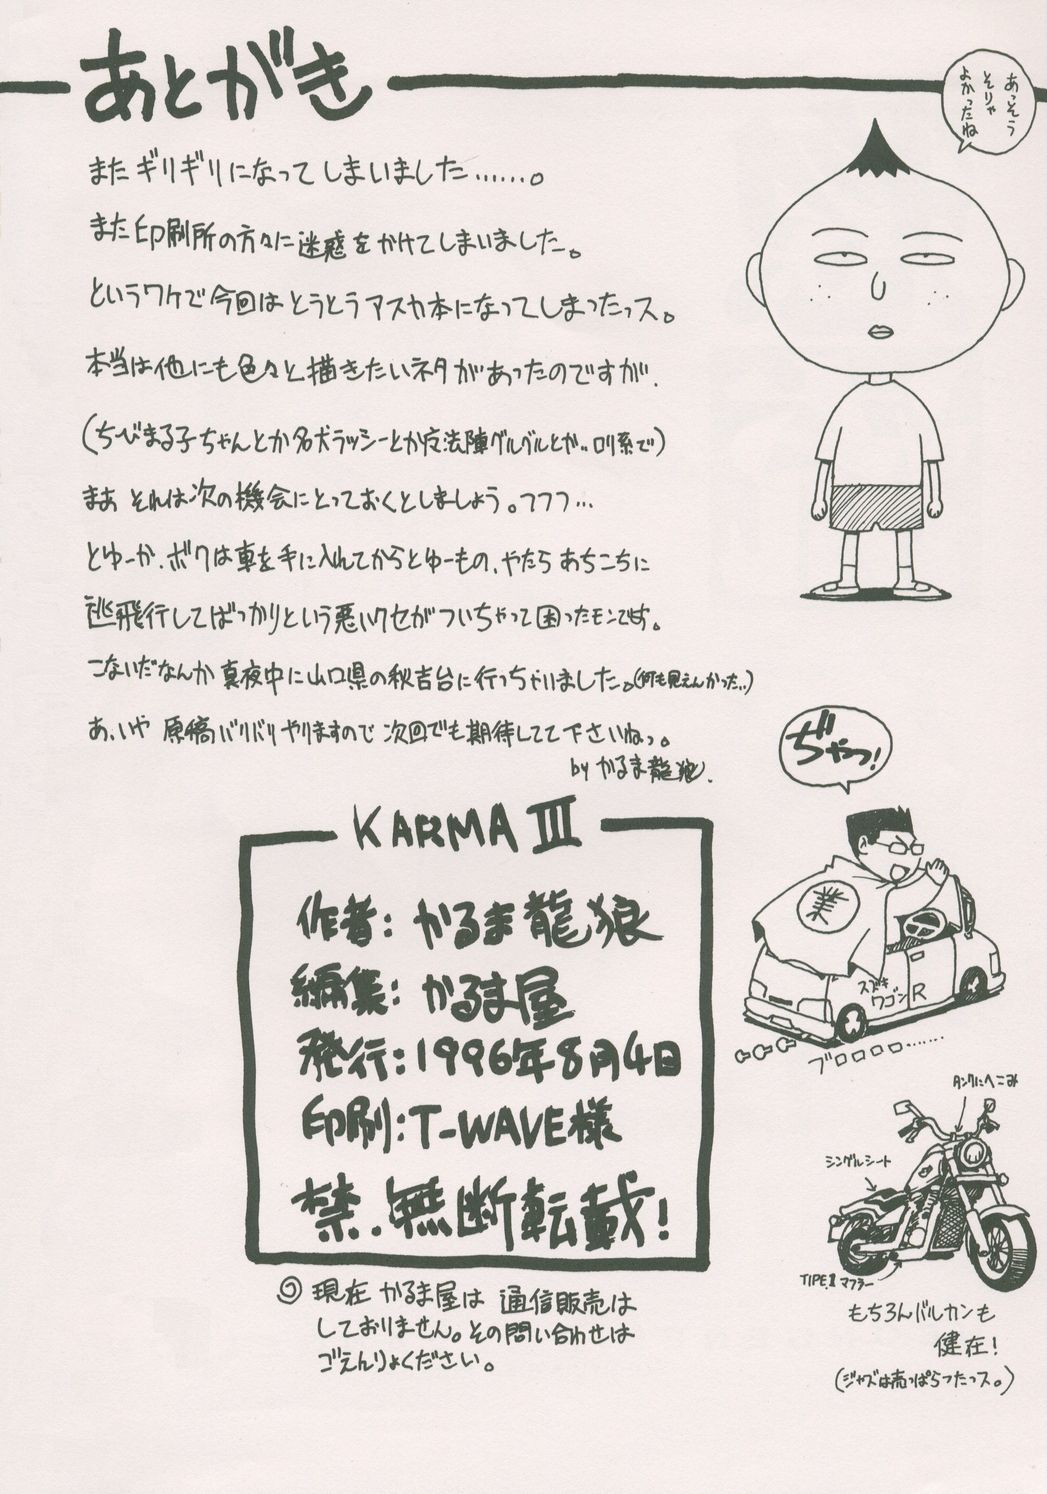 あとがき
あっそう
そりゃ
よかったね
またギリギリになってしまいました……。
また印刷所の方々に迷惑をかけてしまいました。
というワケで今回はとうとうアスカ本になってしまったっス。
本当は他にも色々と描きたいネタがあったのですが、
(ちびまる子ちゃんとか名犬ラッシーとか魔法陣グルグルとか‥ロリ系で)
まあ それは次の機会にとっておくとしましょう。フフフ…
とゆーか、ボクは車を手に入れてからとゆーもの、やたら あちこちに
逃飛行してばっかりという悪いクセがついちゃって困ったモンです。
こないだなんか 真夜中に山口県の秋吉台に行っちゃいました。(何も見えんかった‥)
あ、いや 原稿バリバリやりますので 次回でも期待してて下さいねっ。
by かるま龍狼.
ぢゃっ!
業
スズキ
ワゴンR
ブロロロロ……
KARMA III
作者:かるま龍狼
編集:かるま屋
発行:1996年8月4日
印刷:T-WAVE様
禁.無断転載!
現在 かるま屋は 通信販売は
しておりません。その問い合わせは
ごえんりょください。
タンクにへこみ
シングルシート
TIPE.II マフラー
もちろんバルカンも
健在!
(ジャズは売っぱらったっス。)